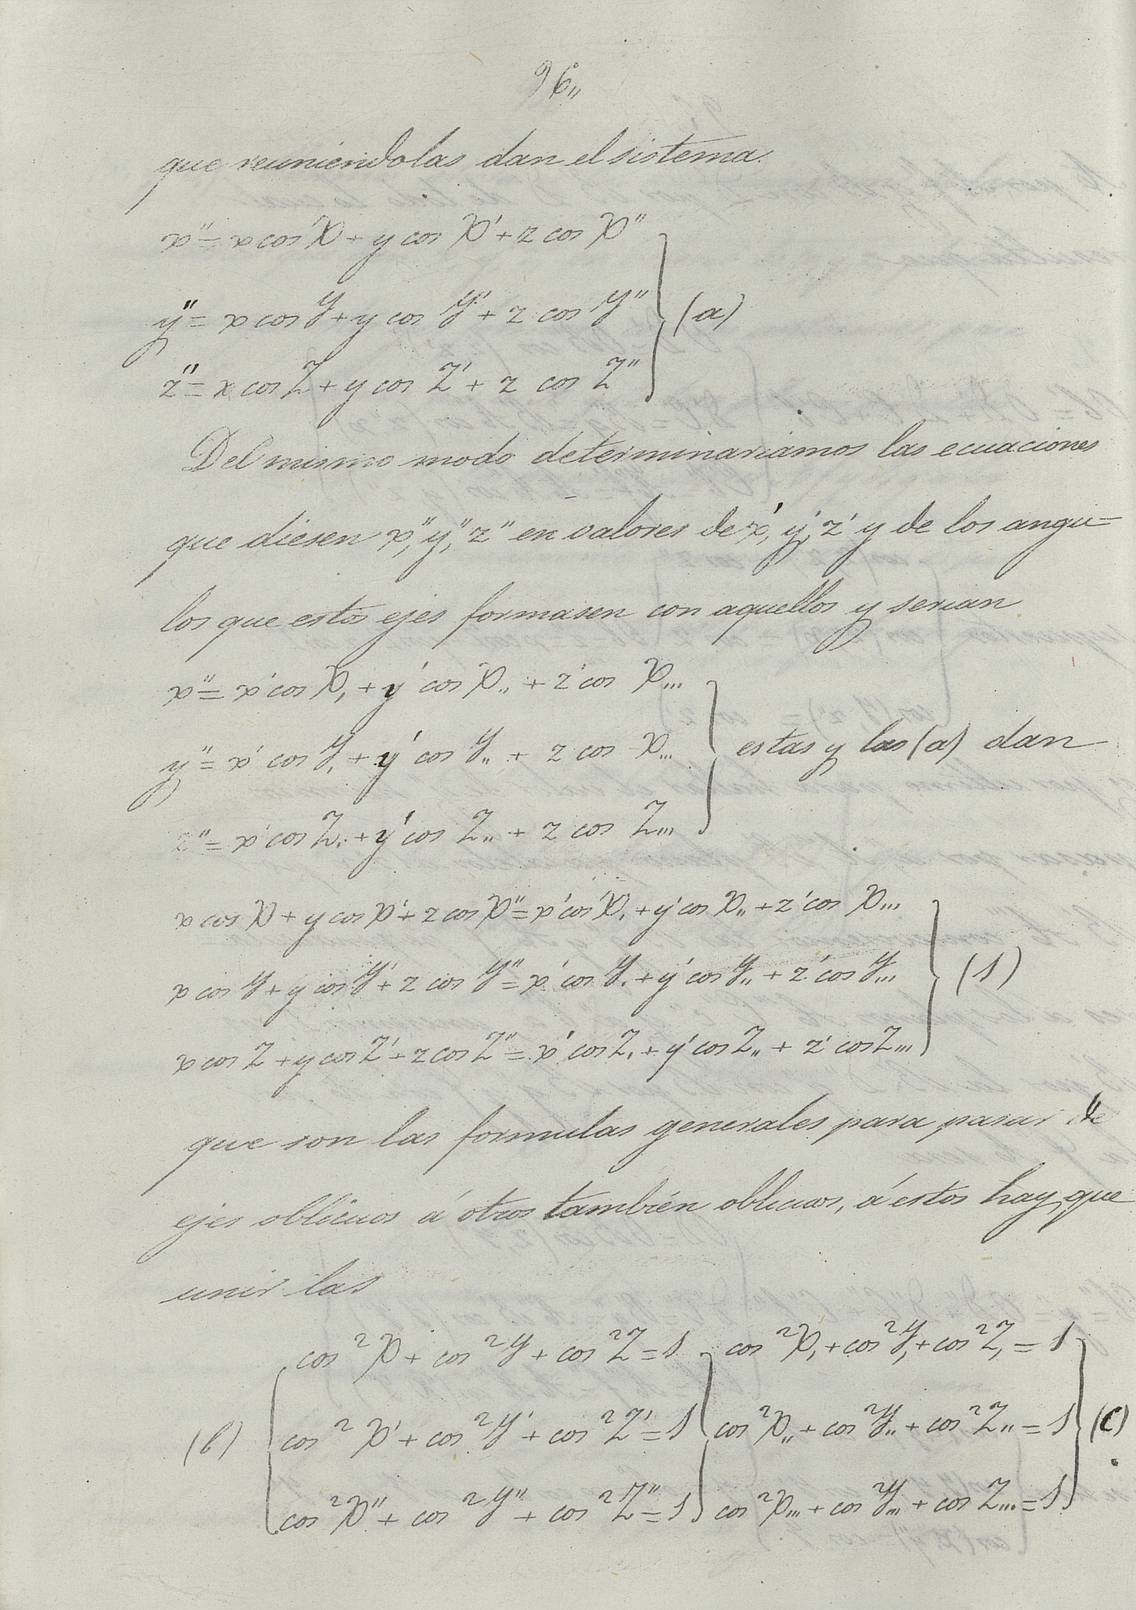 96,,
que reuniéndolas dan el sistema.
x''= x cos X + y cos X' + z cos X''
y''= x cos Y + y cos Y' + z cos Y'' } (a)
z''= x cos Z + y cos Z' + z cos Z''
Del mismo modo determinariamos las ecuaciones
que diesen x'', y'', z'' en valores de x', y', z' y de los angu=
los que estos ejes formasen con aquellos y serian
x''= x' cos X, + y' cos X,, + z' cos X,,,
y''= x' cos Y, + y' cos Y,, + z cos X,,, } estas y las (a) dan
z''= x' cos Z, + y' cos Z,, + z cos Z,,,
x cos X + y cos X' + z cos X'' = x' cos X, + y' cos X,, + z' cos X,,,
x cos Y + y cos Y' + z cos Y'' = x' cos Y, + y' cos Y,, + z' cos Y,,, } (1)
x cos Z + y cos Z' + z cos Z'' = x' cos Z, + y' cos Z,, + z' cos Z,,,
que son las formulas generales para pasar de
ejes oblicuos á otros también oblicuos, á estos hay que
unir las
cos²X + cos²Y + cos²Z = 1 cos²X, + cos²Y, + cos²Z, = 1
(b) { cos²X' + cos²Y' + cos²Z' = 1 } cos²X,, + cos²Y,, + cos²Z,, = 1 } (c)
cos²X'' + cos²Y'' + cos²Z'' = 1 cos²X,,, + cos²Y,,, + cos Z,,, = 1